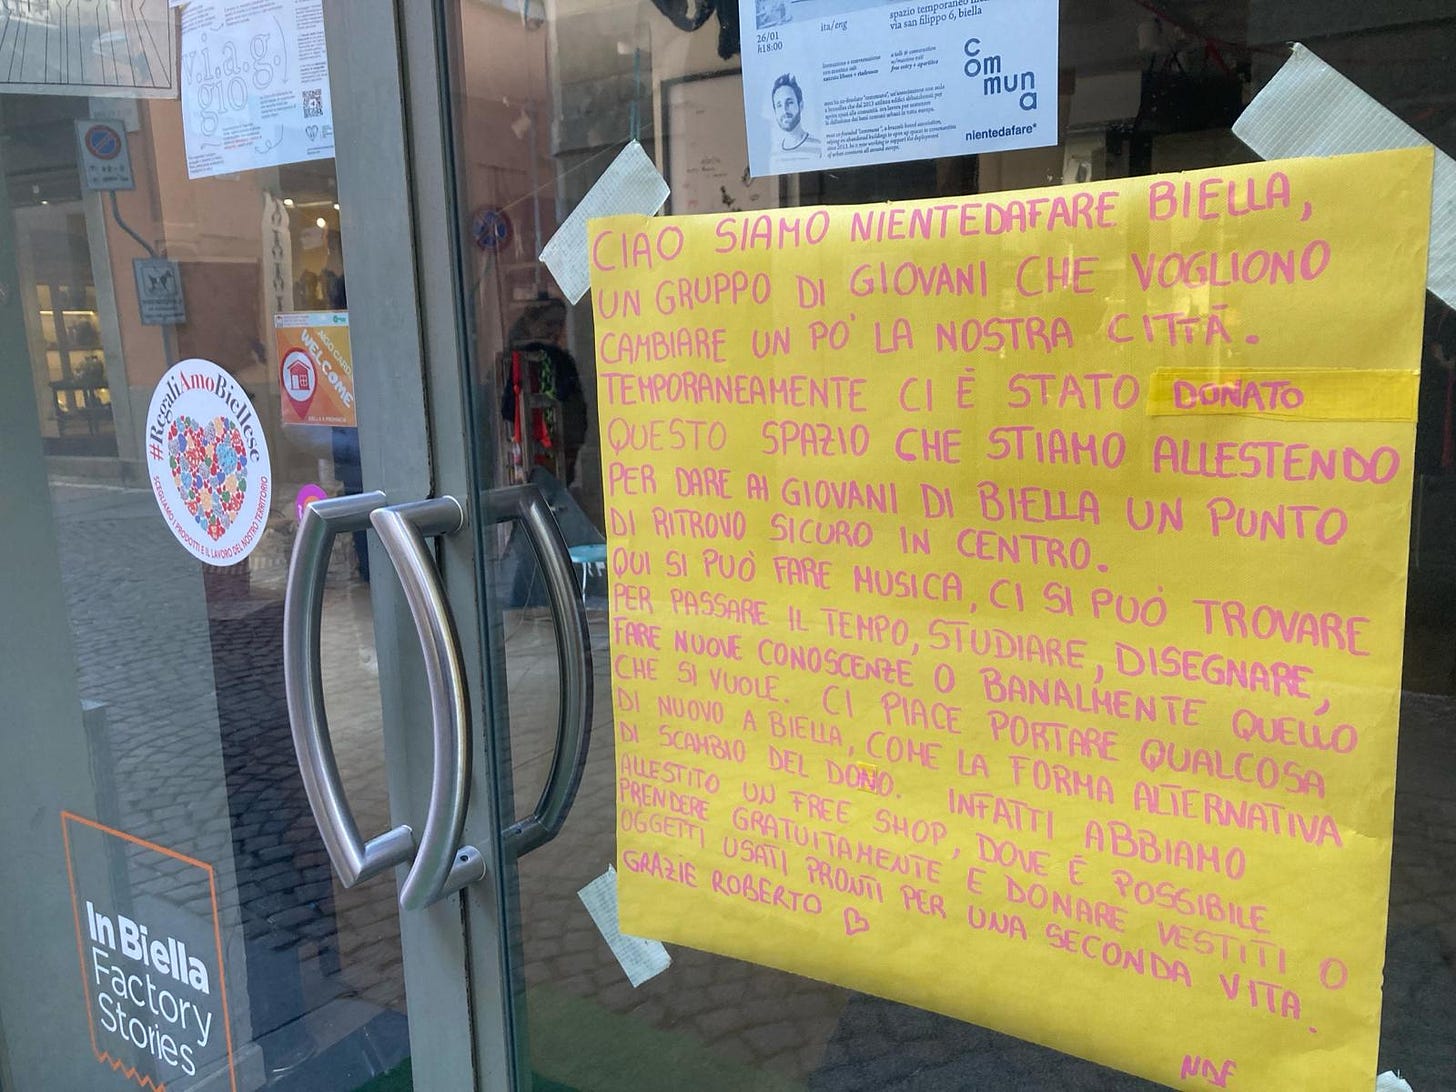 v.i.a.g.
gio
26/01
h18:00
ita/eng
spazio temporaneo
via san filippo 6, biella
Communa
nientedafare*
WELCOME
#RegaliAmoBiellese
SCEGLIAMO I PRODOTTI E IL LAVORO DEL NOSTRO TERRITORIO
In Biella
Factory
Stories
CIAO SIAMO NIENTEDAFARE BIELLA,
UN GRUPPO DI GIOVANI CHE VOGLIONO
CAMBIARE UN PO' LA NOSTRA CITTÀ.
TEMPORANEAMENTE CI È STATO DONATO
QUESTO SPAZIO CHE STIAMO ALLESTENDO
PER DARE AI GIOVANI DI BIELLA UN PUNTO
DI RITROVO SICURO IN CENTRO.
QUI SI PUÒ FARE MUSICA, CI SI PUÒ TROVARE
PER PASSARE IL TEMPO, STUDIARE, DISEGNARE,
FARE NUOVE CONOSCENZE O BANALMENTE QUELLO
CHE SI VUOLE. CI PIACE PORTARE QUALCOSA
DI NUOVO A BIELLA, COME LA FORMA ALTERNATIVA
DI SCAMBIO DEL DONO. INFATTI ABBIAMO
ALLESTITO UN FREE SHOP, DOVE È POSSIBILE
PRENDERE GRATUITAMENTE E DONARE VESTITI O
OGGETTI USATI PRONTI PER UNA SECONDA VITA.
GRAZIE ROBERTO
NDF